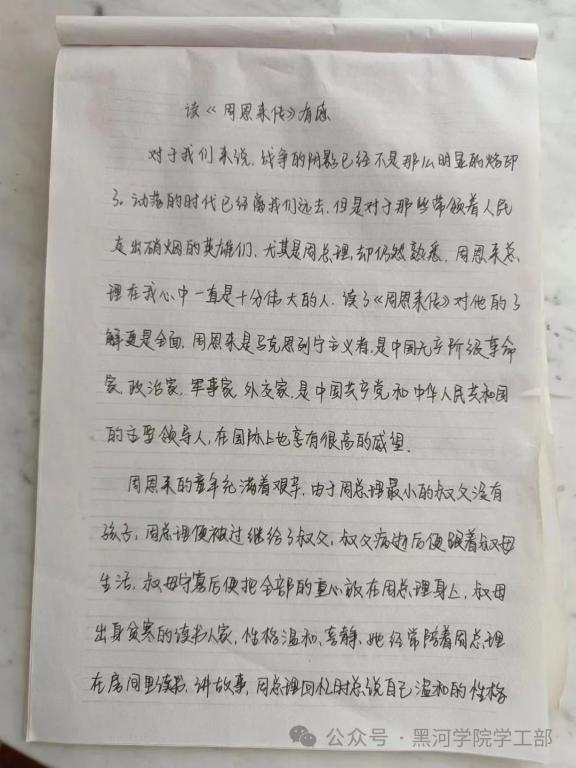 读《周恩来传》有感
对于我们来说,战争的阴影已经不是那么明显的烙印
了。动荡的时代已经离我们远去,但是对于那些带领着人民
走出硝烟的英雄们,尤其是周总理,却仍然熟悉。周恩来总
理在我心中一直是十分伟大的人,读了《周恩来传》对他的了
解更是全面,周恩来是马克思列宁主义者,是中国无产阶级革命
家,政治家,军事家,外交家,是中国共产党和中华人民共和国
的主要领导人,在国际上也享有很高的威望。
周恩来的童年充满着艰辛,由于周总理最小的叔父没有
孩子,周总理便被过继给了叔父,叔父病逝后便跟着叔母
生活,叔母守寡后便把全部的重心放在周总理身上,叔母
出身贫寒的读书人家,性格温和、喜静,她经常陪着周总理
在房间里读书,讲故事,周总理回忆时总说自己温和的性格
公众号·黑河学院学工部